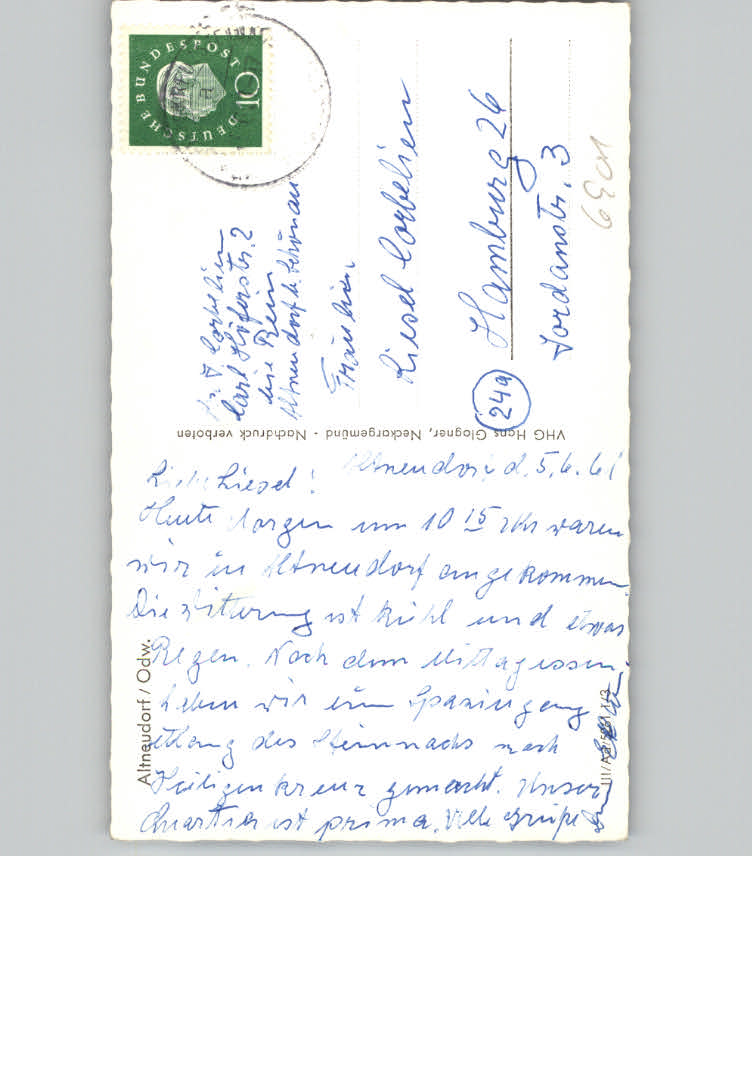 Altneudorf d. 5.6.61
Liebe Liesel!
Heute Morgen um 10 15 Uhr waren
wir in Altneudorf angekommen.
Die Witterung ist kühl und etwas
Regen. Nach dem Mittagessen
haben wir ein Spaziergang
entlang des Steinnachs nach
Heiligenkreuz gemacht. Unser
Quartier ist prima. Viele Grüße
Altneudorf / Odw.
VHG Hans Glagner, Neckargemünd - Nachdruck verboten
DEUTSCHE BUNDESPOST
10
Corbelien
Carl Höferstr. 2
bei Rein
Altneudorf b. Schönau
Fräulein
Liesel Corbelien
24a
Hamburg 26
Jordanstr. 3